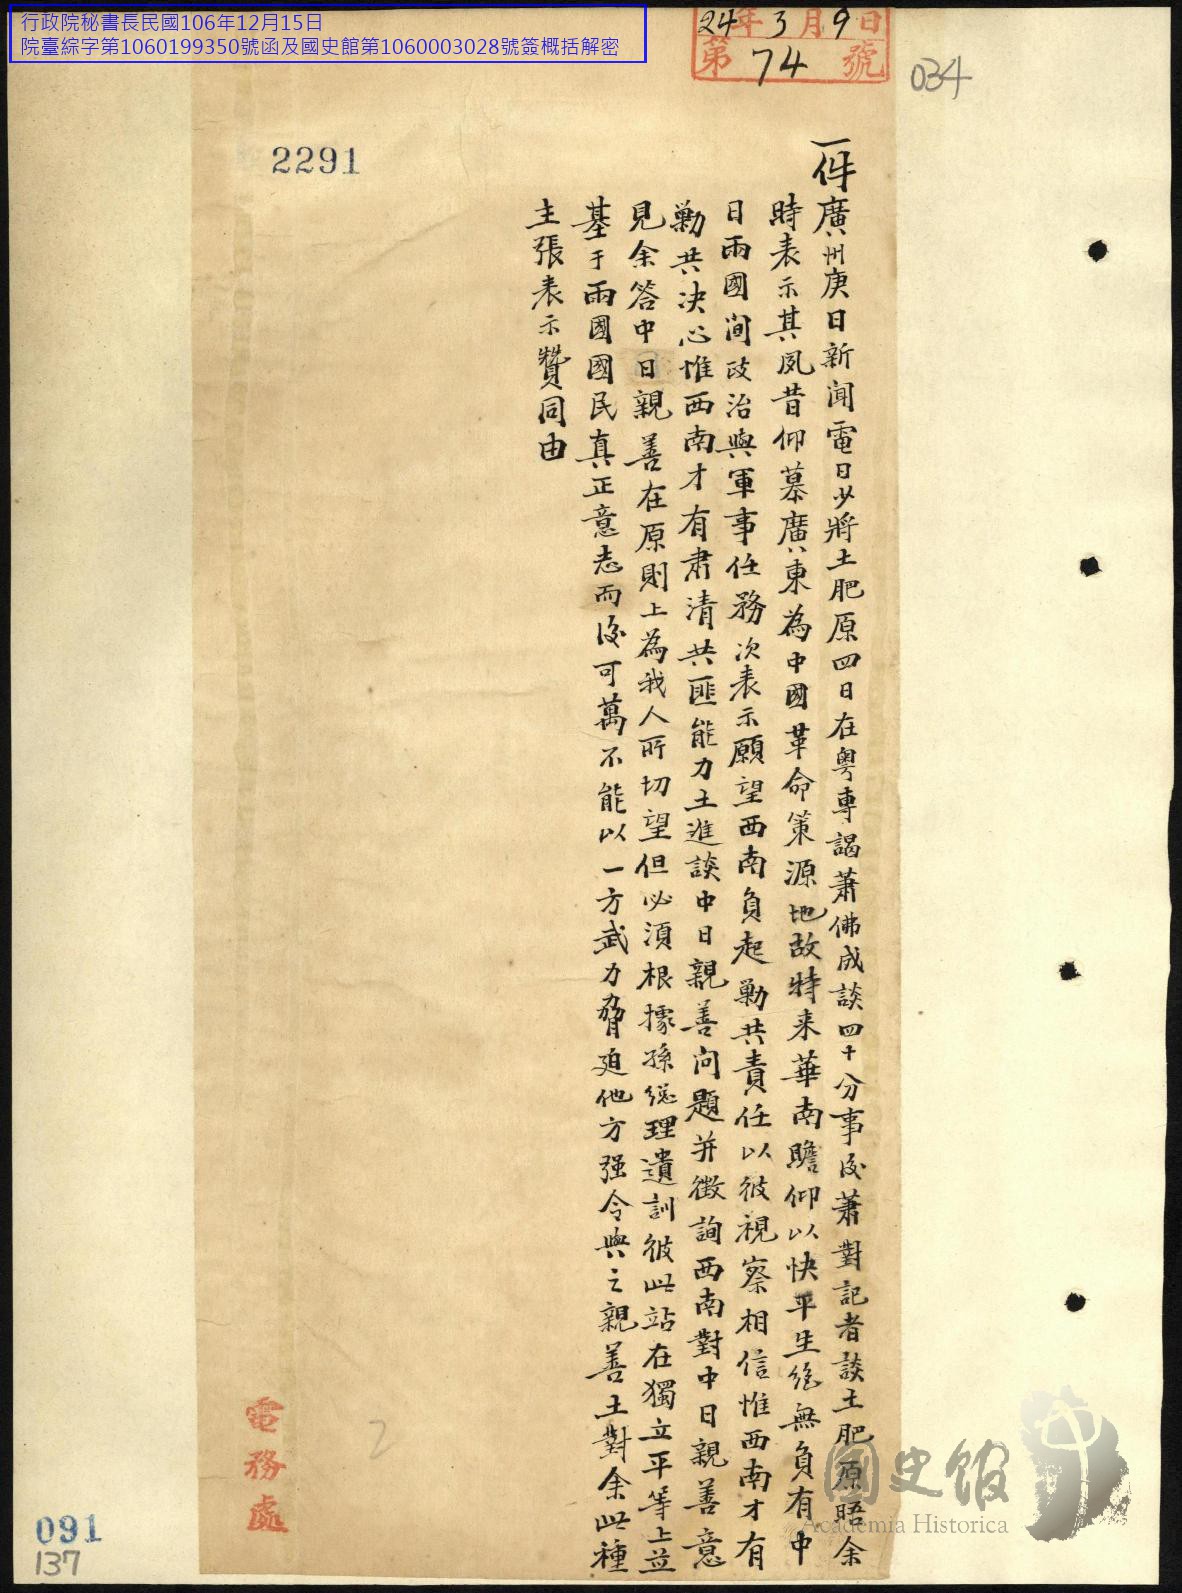 行政院秘書長民國106年12月15日
院臺綜字第1060199350號函及國史館第1060003028號簽概括解密
24年3月9日
第74號
034
2291
一件廣州庚日新闻電日少將土肥原四日在粵專謁蕭佛成談四十分事後蕭對記者談土肥原晤余
時表示其夙昔仰慕廣東為中國革命策源地故特来華南瞻仰以快平生絕無負有中
日兩國间政治與軍事任務次表示願望西南負起勦共責任以彼視察相信惟西南才有
勦共决心惟西南才有肃清共匪能力土進談中日親善问題并徵詢西南對中日親善意
見余答中日親善在原則上為我人所切望但必須根據孫總理遺訓彼此站在獨立平等上並
基于兩國國民真正意志而後可萬不能以一方武力脅迫他方强令與之親善土對余此種
主張表示贊同由
電務處
2
091
137
國史館
Academia Historica